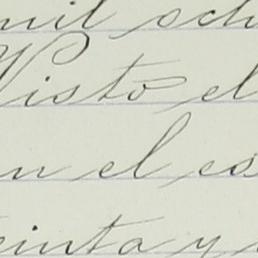 mil och
Visto el
en el es
einta y